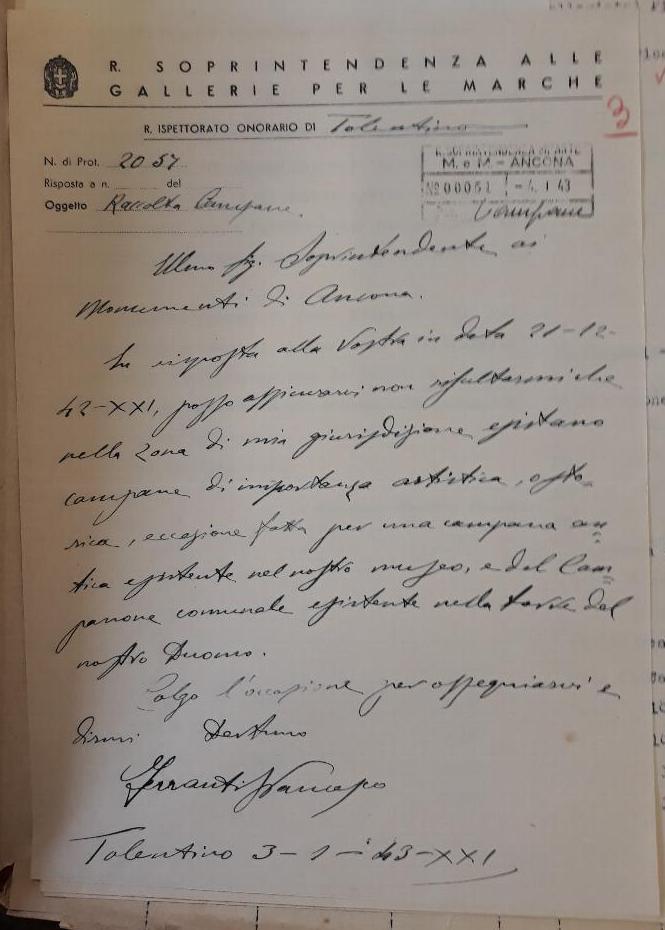 R. SOPRINTENDENZA ALLE
GALLERIE PER LE MARCHE
3
R. ISPETTORATO ONORARIO DI Tolentino
N. di Prot. 2057
Risposta a n. del
Oggetto Raccolta Campane.
R. SOPRINTENDENZA
M. e M. - ANCONA
No 00051 - 4. 1 43
Campane
Illmo Sig. Soprintendente ai
Monumenti di Ancona.
In risposta alla Vostra in data 21-12-
42-XXI, posso assicurarvi non risultarmi che
nella zona di mia giurisdizione esistano
campane di importanza artistica, o sto-
rica, eccezione fatta per una campana an=
tica esistente nel nostro museo, e del Cam=
panone comunale esistente nella torre del
nostro Duomo.
Colgo l'occasione per ossequiarvi e
dirmi
Francesco
Tolentino 3-1-43-XXI